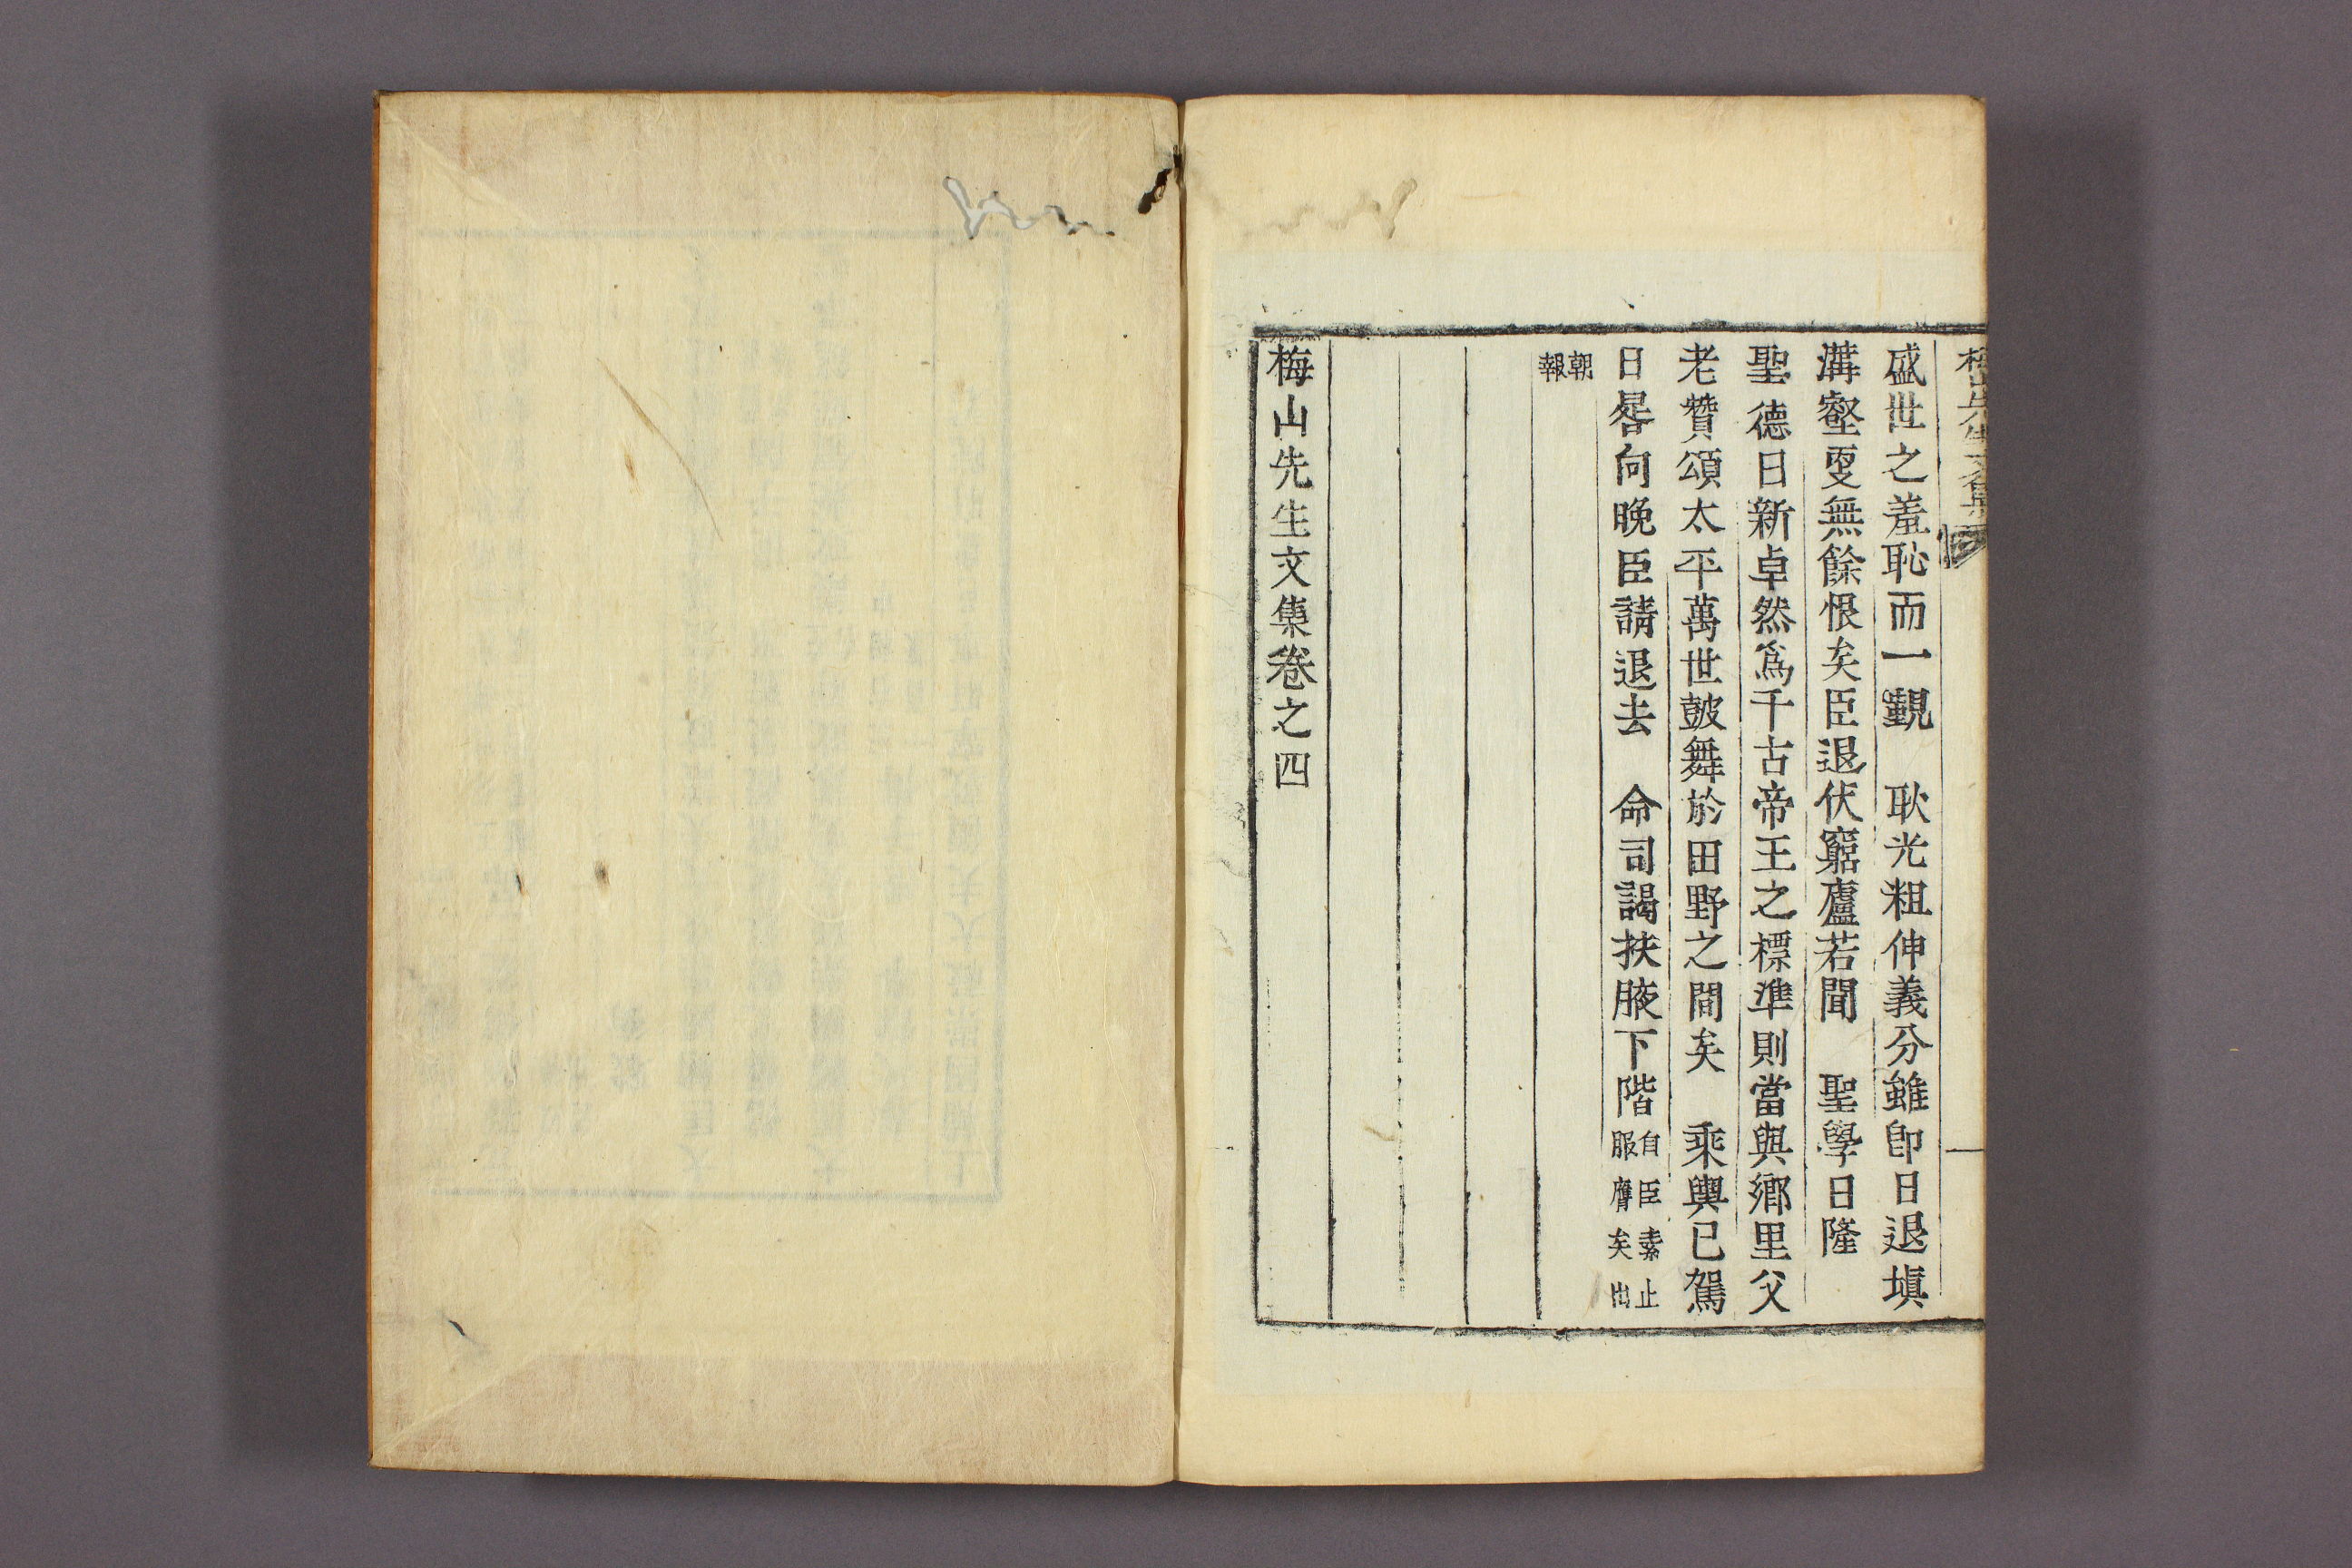 梅山先生文集
盛世之羞恥而一覲　耿光粗伸義分雖卽日退塡
溝壑更無餘恨矣臣退伏窮廬若聞　聖學日隆
聖德日新卓然爲千古帝王之標準則當與鄕里父
老贊頌太平萬世鼓舞於田野之間矣　乘輿已駕
日晷向晚臣請退去　命司謁扶腋下階自臣素止
服膺矣出
朝
報
梅山先生文集卷之四